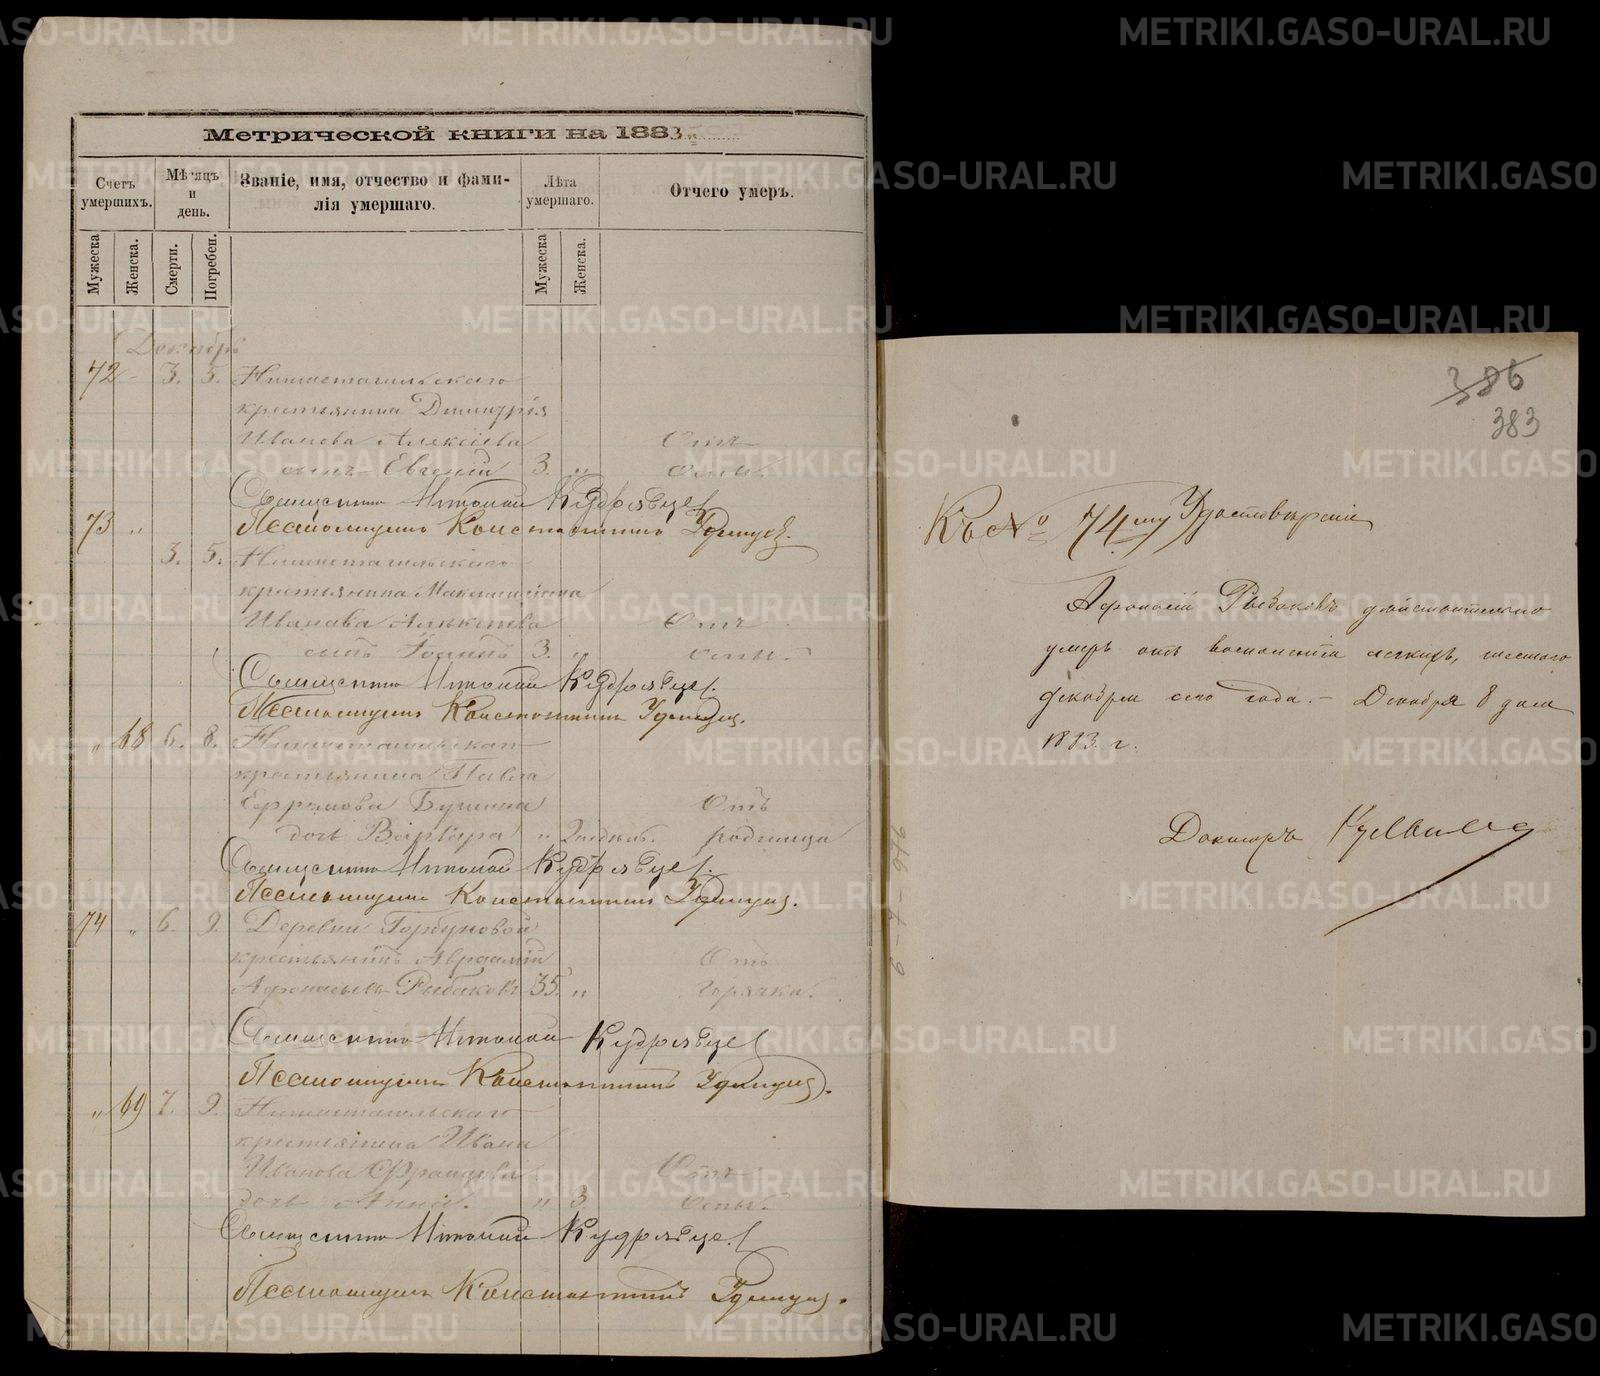 Метрической книги на 1883
Счетъ умершихъ.
Мѣсяцъ и день.
Званіе, имя, отчество и фами-
лія умершаго.
Лѣта умершаго.
Отчего умеръ.
Мужеска
Женска.
Смерти.
Погребен.
Мужеска
Женска.
Декабрь
72 - 3. 5. Нижнетагильскаго
крестьянина Димитрія
Иванова Алексѣева Отъ
сынъ Евгеній 3. „ оспы.
Священникъ Николай Кудрявце
73 „ Псаломщикъ Константинъ Удинцев.
3. 5. Нижнетагильскаго
крестьянина Максимиліана
Иванова Алексѣева Отъ
сынъ Іоаннъ 3. „ оспы.
Священникъ Николай Кудрявце
Псаломщикъ Константинъ Удинц.
„ 68 6. 8. Нижнетагильскаго
крестьянина Павла
Ефремова Отъ
дочь Варвара „ родимца
Священникъ Николай Кудрявце
Псаломщикъ Константинъ Удинц.
74 „ 6. 9. Деревни Горбуновой
крестьянинъ Авраамій Отъ
Афанасьевъ Рыбаковъ 35. „ горячки.
Священникъ Николай Кудрявце
Псаломщикъ Константинъ Удинц.
„ 69 7. 9. Нижнетагильскаго
крестьянина Ивана
Иванова Францева Отъ
дочь Анна. „ 3 Оспы.
Священникъ Николай Кудрявце
Псаломщикъ Константинъ Удинц.
386
383
Къ № 74му Удостовѣреніе
Афонасій Рыбаковъ дѣйствительно
умеръ отъ воспаленія легкихъ, шестого
декабря сего года. – Декабря 8 дня
1883 г.
Докторъ
METRIKI.GASO-URAL.RU